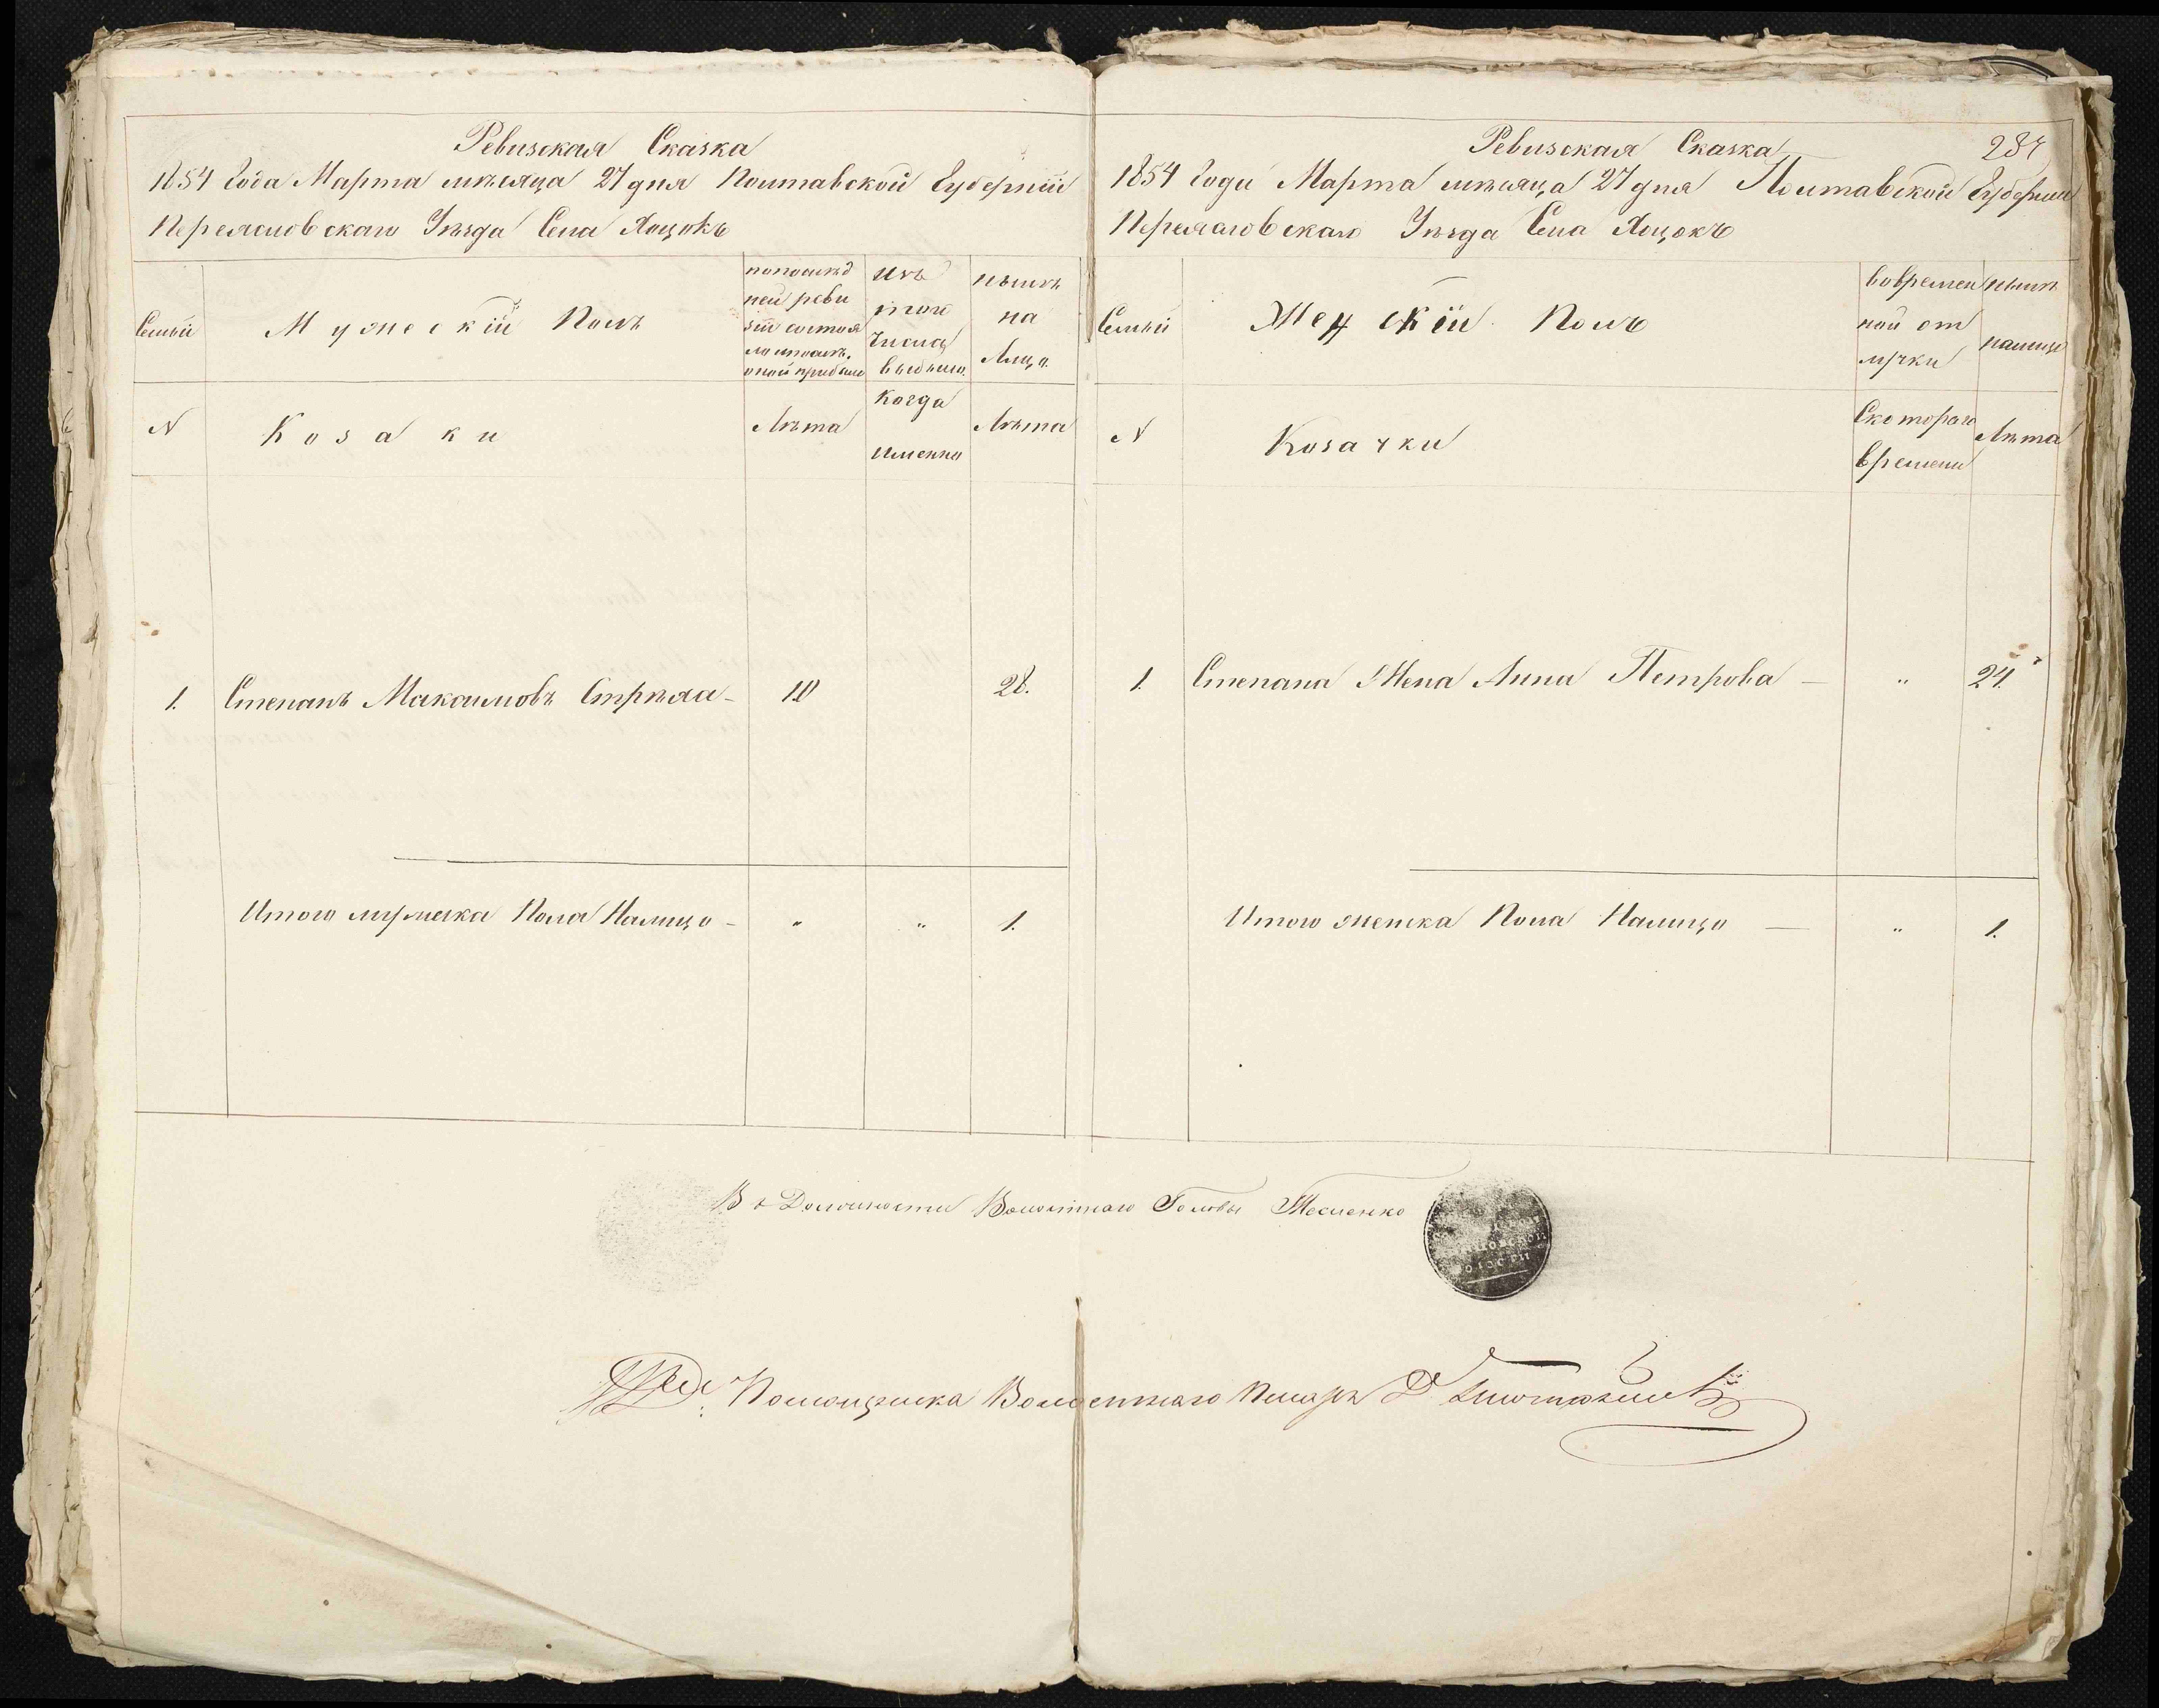 Ревизская Сказка
1854 Года Марта мѣсяца 27 дня Полтавской Губерніи
Переясловскаго Уѣзда Села Хоцокъ
Семьи
Мужескій Полъ
попослѣд
ней реви
зіи состоя
ло и послѣ
оной прибыло
изъ
того
числа
выбыло
нынѣ
на
Лицо
N
Козаки
Лѣта
Когда
именно
Лѣта
1. Степанъ Максимовъ Стрѣла - 18 28.
Итого мужеска Пола Налицо - " " 1.
Ревизская Сказка
284
1854 Года Марта мѣсяца 27 дня Полтавской Губерніи
Переяаловскаго Уѣзда Села Хоцокъ
Семьи
Женскій Полъ
вовремен
ной от
лучки
нынѣ
налицо
N
Козачки
Скотораго
времени
Лѣта
1. Степана Жена Анна Петрова — " 24.
Итого женска Пола Налицо — " 1.
Въ Должности Волостнаго Головы Тесленко
Помощника Волостнаго Писаря